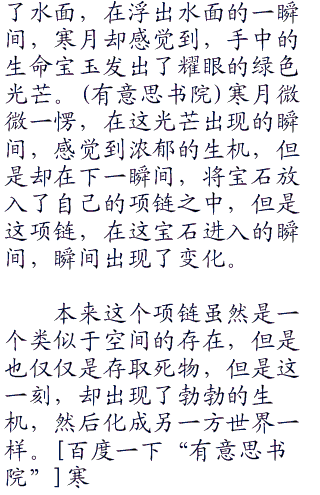 了水面，在浮出水面的一瞬
间，寒月却感觉到，手中的
生命宝玉发出了耀眼的绿色
光芒。(有意思书院)寒月微
微一愣，在这光芒出现的瞬
间，感觉到浓郁的生机，但
是却在下一瞬间，将宝石放
入了自己的项链之中，但是
这项链，在这宝石进入的瞬
间，瞬间出现了变化。
本来这个项链虽然是一
个类似于空间的存在，但是
也仅仅是存取死物，但是这
一刻，却出现了勃勃的生
机，然后化成另一方世界一
样。[百度一下“有意思书
院”]寒